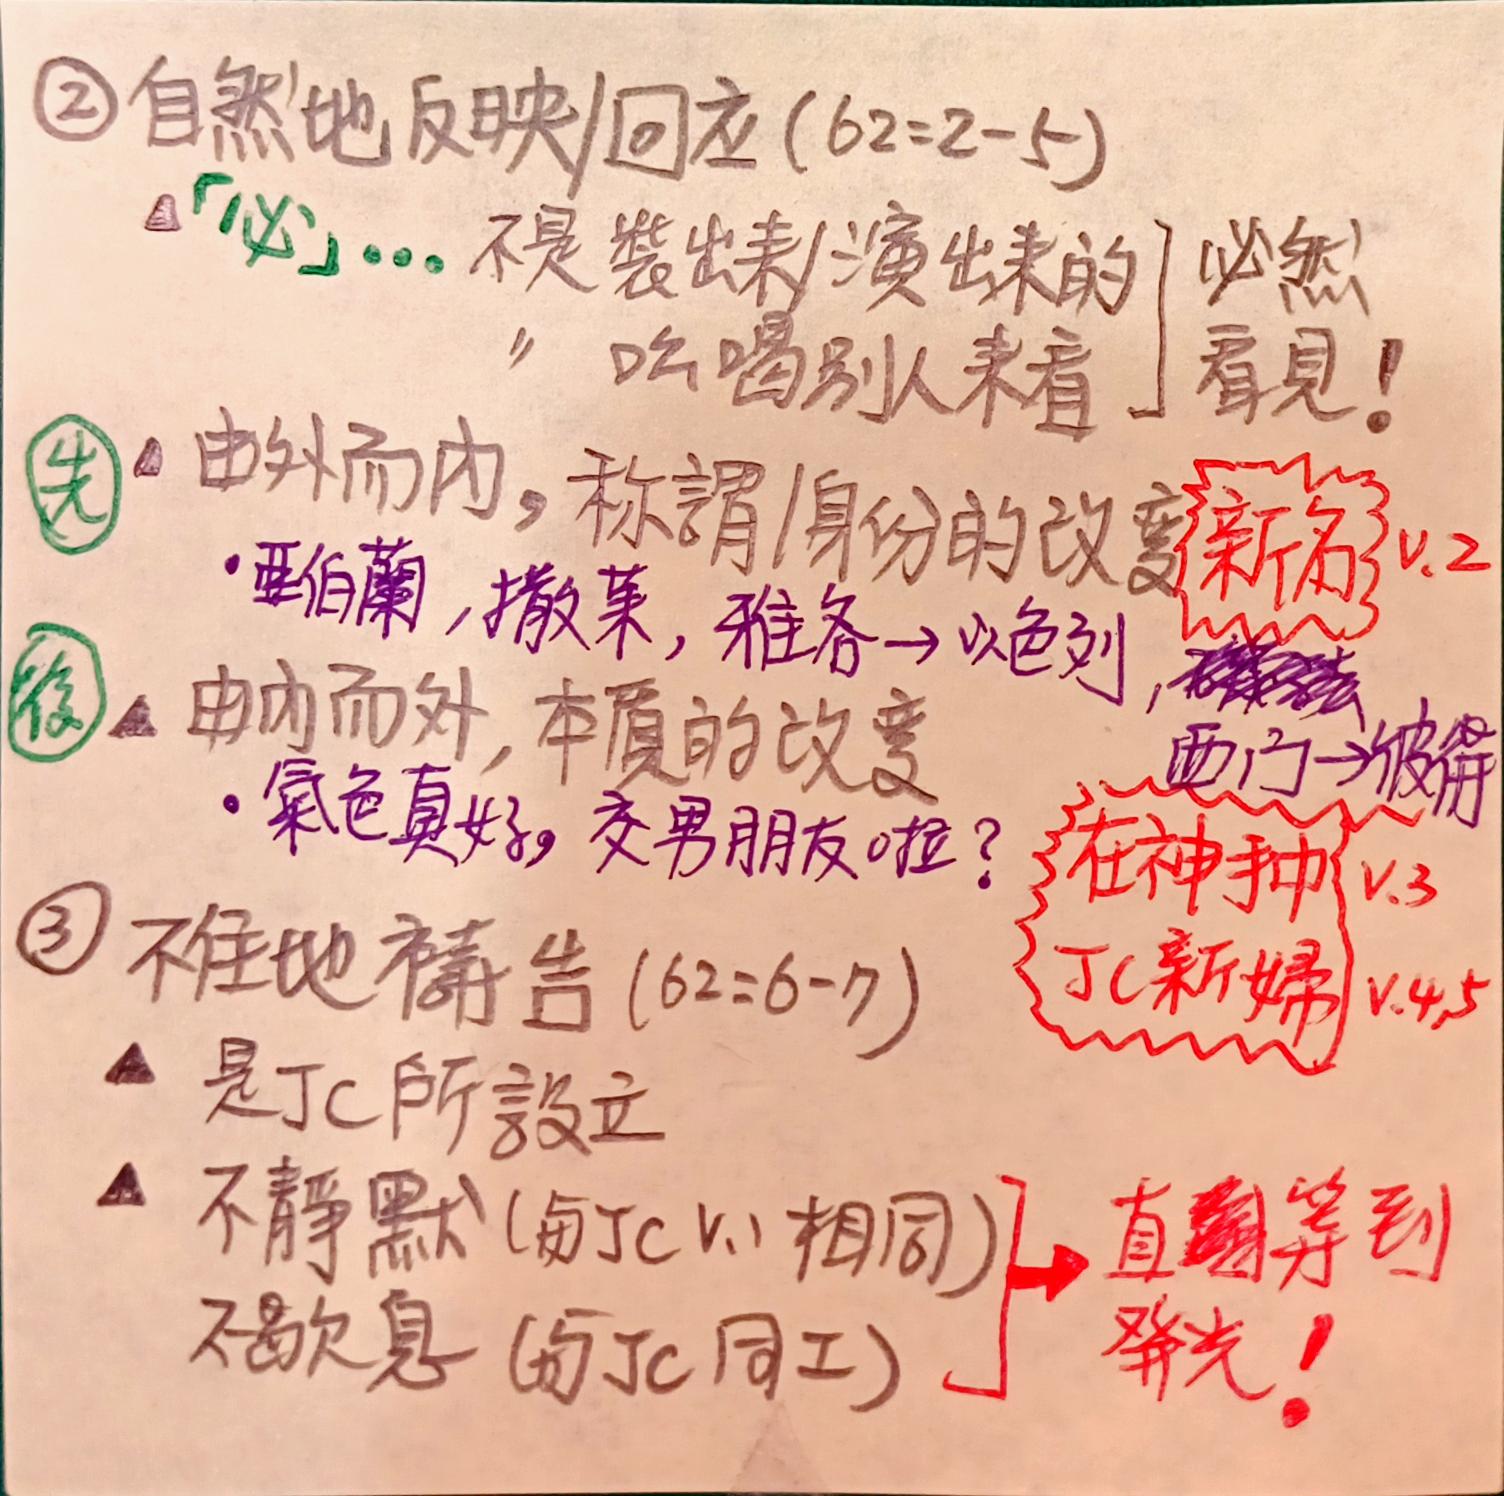 ② 自然地反映/回应 (62=2-5)
▲「必」... 不是裝出来/演出来的 必然
〃 吆喝別人来看 看見!
先 ▲ 由外而内,称謂/身份的改变 新名 v.2
• 亞伯蘭,撒莱,雅各→以色列,
西门→彼得
後 ▲ 由内而外,本質的改变
• 氣色真好,交男朋友啦?
在神手中 v.3
JC新婦 v.4,5
③ 不住地禱告 (62=6-7)
▲ 是JC所設立
▲ 不靜默 (与JC v.1 相同)
不歇息 (与JC 同工)
直等到
發光!